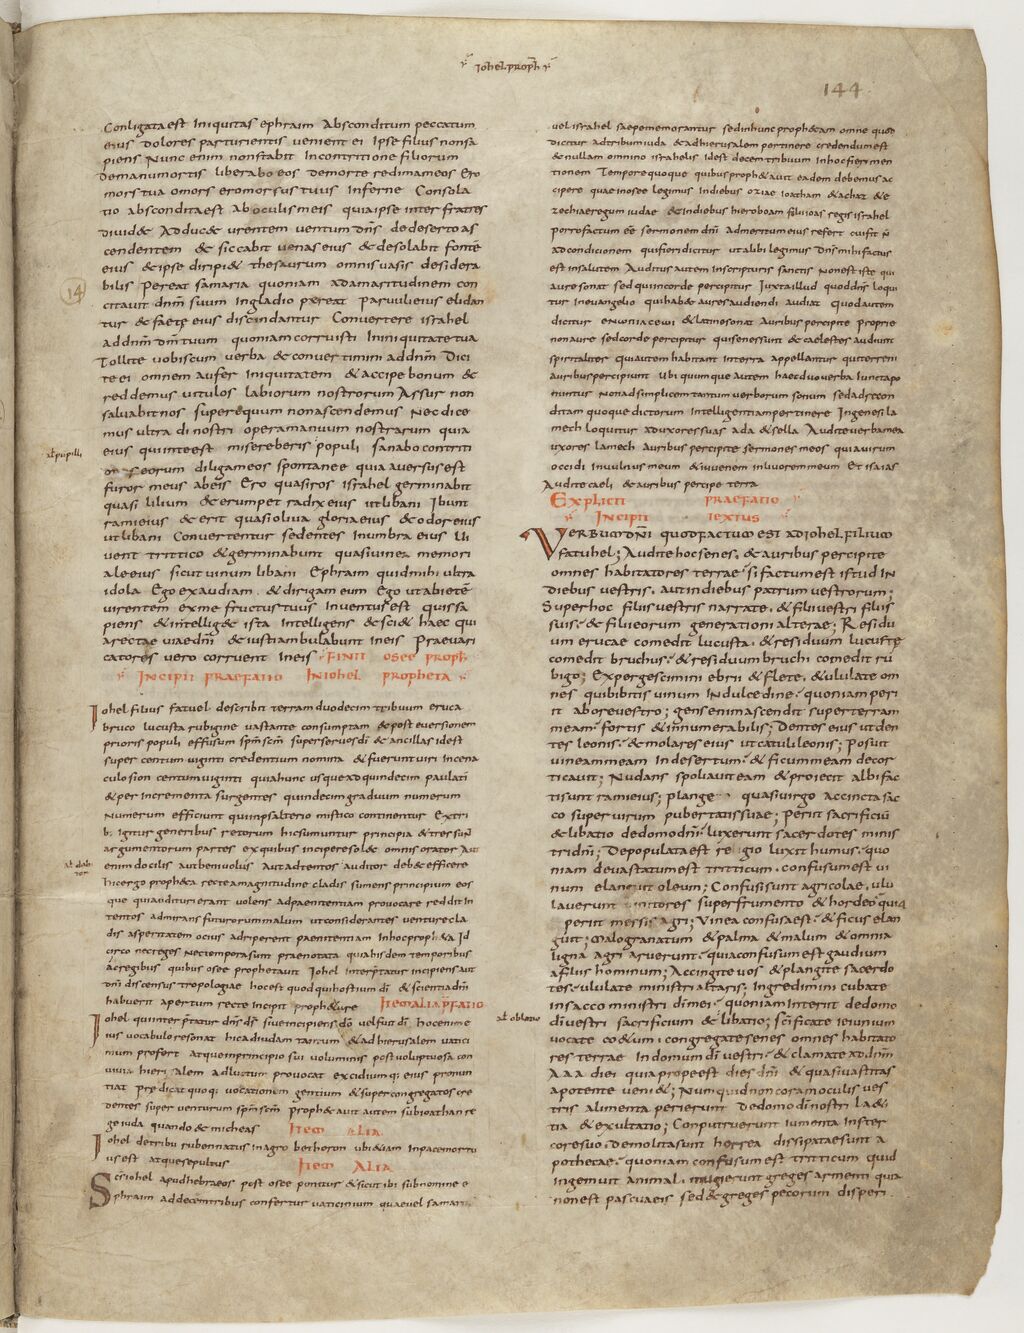 Iohel proph
144
Conligata est Iniquitas ephraim Absconditum peccatum
eius Dolores parturientis venient ei Ipse filius nonsa
piens Nunc enim nonstabit Incontritione filiorum
Demanumortis liberabo eos demorte redimameos Ero
mors tua omors eromorsus tuus inferne Consola
tio absconditaest Aboculismeis quiaipse inter fratres
Dividet Adducet urentem ventum dns deserto as
cendentem & siccabit venas eius & desolabit fonte
eius & ipse diripi& thesaurum omnisvasis desidera
bilis Pereat samaria quoniam adamaritudinem con
14
citavit dnm suum Ingladio pereat Parvulieius elidan
tur & faete eius discindantur Convertere israhel
Addnm dm tuum quoniamcorruisti Ininiquitate tua
Tollite vobiscum verba & convertimini addnm Dici
te ei omnem aufer iniquitatem & accipe bonum &
reddemus vitulos labiorum nostrorum Assur non
salvabitnos superequum nonascendemus Nec dice
mus ultra di nostri operamanuum nostrarum quia
eius quiinteest misereberis populi sanabo contriti
eorum diligameos spontanee quia aversusest
furor meus abeis Ero quasiros israhel germinabit
quasi lilium & erumpet radix eius utlibani Ibunt
ramieius & erit quasioliva gloriaeius & odoreius
utlibani Convertentur sedentes inumbra eius Ui
vent trittico & germinabunt quasivinea memori
aleeius sicutvinum libani Ephraim quidmihi ultra
idola Ego exaudiam & dirigam eum Ego utabiete
virentem exme fructustuus Inventusest Quis sa
piens & intellig& ista Intelligens & sci& haec qui
arectae viaedni & iustiambulabunt ineis Praevari
catores vero corruent ineis FINIT osee proph
Incipit praefatio Iniohel propheta
Iohel filius fatuel describit terramduodecim tribuum eruca
bruco lucusta rubigine vastante consumptam & post eversionem
prioris populi effusum spmscm superservosdi & ancillas idest
super centum viginti credentium nomina & fueruntviri Incena
culosion centumviginti quiahunc usqueadquindecim paulati
& per incrementa surgentes quindecimgraduum numerum
Numerum efficiunt quiinpsalterio mistico continentur Extri
b: igitur generibus retorum hicsumuntur principia & tresun
argumentorum partes exquibus inciperesol& omnisorator Aut
enim docilis autbenivolus Autadtentos auditor deb& efficere
hicergo proph&a recteamagnitudine cladis sumens principium eos
que quiaudituri erant volens adpaenitentiam provocare redditin
tentos admirans futurorummalum utconsiderantes venturecla
dis asperitatem ocius adriperent paenitentiam Inhocproph&a Id
circo necreges Nectemporasum praenotata quiahisdem temporibus
acregibus quibus osee prophetavit Iohel interptatur incipiensaut
dni discensus tropologiae hocest quodquihostium di & scientiadni
habuerit apertum recte incipit proph&are Item alia pfatio
Iohel quiinterptatur dns ds sive incipiens do vel fuit di hocenime
ius vocabuloresonat hicadiudam tantum & ad hierusalem vatici
nium profert Atqueinprincipio sui voluminis postvoluptuosa con
vivia hieri Alem adluctum provocat excidiumq: eius pronun
tiat Predicat quoq: vocationem gentium & supercongregatos cre
dentes super venturum spmscm Proph&avit autem subioathan re
ge iuda quando & micheas Item alia
Iohel detribu rubennatus inagro bethoron ubi&iam inpacemortu
usest atquesepultus Item Alia
Scs iohel apudhebraeos post osee ponitur & sicut ibi subnomine e
phraim addecemtribus confertur vaticinium quaevel samari
uel israhel saepememorantur sedinhuncproph&am omne quod
Dicitur adtribumiuda & adhierusalem pertinere credendumest
& nullam omnino israhelis Idest decemtribuum inhocfieri men
tionem Temporequoque quibusproph&avit eadem debemus ac
cipere quaeinosee legimus Indiebus oziae ioatham & achaz & e
zechiaeregum iudae & indiebus hieroboam filiiioas regis israhel
Porrofactum ee sermonem dni Admeritum eius refert cuifit n
adcondicionem quifieridicitur utalibi legimus Dns mihifactus
est insalutem Auditus autem inscripturis sanctis Nonestiste qui
auresonat sed quiincorde percipitur Iuxtaillud quoddns loqui
tur inevangelio quihab& auresaudiendi audiat quodautem
dicitur & latinesonat Auribus percipite Proprie
nonaure sedcorde percipitur quisenessunt & caelestes audiunt
spiritaliter quiautem habitant interra appellantur quiterreni
auribuspercipiunt Ubi quimque autem haecduoverba Iunctapo
nuntur Nonadsimplicemtantum verborum sonum sedadrecon
ditam quoque dictorum intelligentiampertinere Ingenesi la
mech loquitur aduxoressuas ada & sella Auditeverbamea
uxores lamech Auribus percipite sermones meos quiavirum
occidi Invulnus meum & iuvenem inlivoremmeum Et isaias
Audite caeli & auribus percipe terra
Explicit praefatio
Incipit textus
Verbum dni quodfactum est ad iohel filium
fatuhel; Auditehocsenes & auribus percipite
omnes habitatores terrae si factumest istud in
Diebus vestris, autindiebus patrum vestrorum;
Superhoc filiis vestris narrate, & filiivestri filiis
suis & filiieorum generationi alterae; Residu
um erucae comedit lucusta, & residuum lucuste
comedit bruchus & residuum bruchi comedit ru
bigo; Expergescimini ebrii & flete, & ululate om
nes quibibitis vinum Indulcedine quoniam peri
it aborevestro; gensenimascendit superterram
meam fortis & innumerabilis; Dentes eius utden
tes leonis & molares eius utcatulileonis; Posuit
vineammeam Indesertum & ficummeam decor
ticavit; Nudans spoliaviteam & proiecit albifac
tisunt ramieius; plange quasivirgo accincta sac
co supervirum pubertatissuae; Periit sacrificiu
& libatio dedomodni luxerunt sacerdotes minis
tridni; Depopulataest regio luxit humus quo
niam devastatumest tritticum confusumest vi
num elanguit oleum; Confusisunt agricolae, ulu
laverunt vinitores superfrumento & hordeo quia
periit messis agri; Vinea confusaest & ficus elan
guit; malogranatum & palma & malum & omnia
ligna agri aruerunt quiaconfusumest gaudium
afiliis hominum; Accingitevos & plangite sacerdo
tes ululate ministrialtaris; Ingredimini cubate
insacco ministri dimei quoniam interiit dedomo
di vestri sacrificium & libatio; scificate ieiunium
vocate coetum congregatesenes omnes habitato
res terrae Indomum di vestri & clamate addnm
AAA diei quiapropeest dies dni & quasivastitas
apotente veni&; Numquidnoncoramoculis ves
tris alimenta perierunt Dedomodi nostri laeti
tia & exultatio; Computruerunt iumenta instercore
coresuo Demolitasunt horrea dissipataesunt a
pothecae quoniam confusumest tritticum quid
ingemuit animal, mugierunt greges armenti quia
nonest pascuaeis sed & greges pecorum disperi